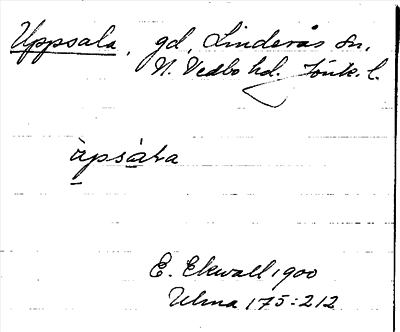 Uppsala, gd, Linderås sn,
N. Vedbo hd. Jönk. l.
àpsàɫa
E. Ekwall 1900
Ulma 175:212